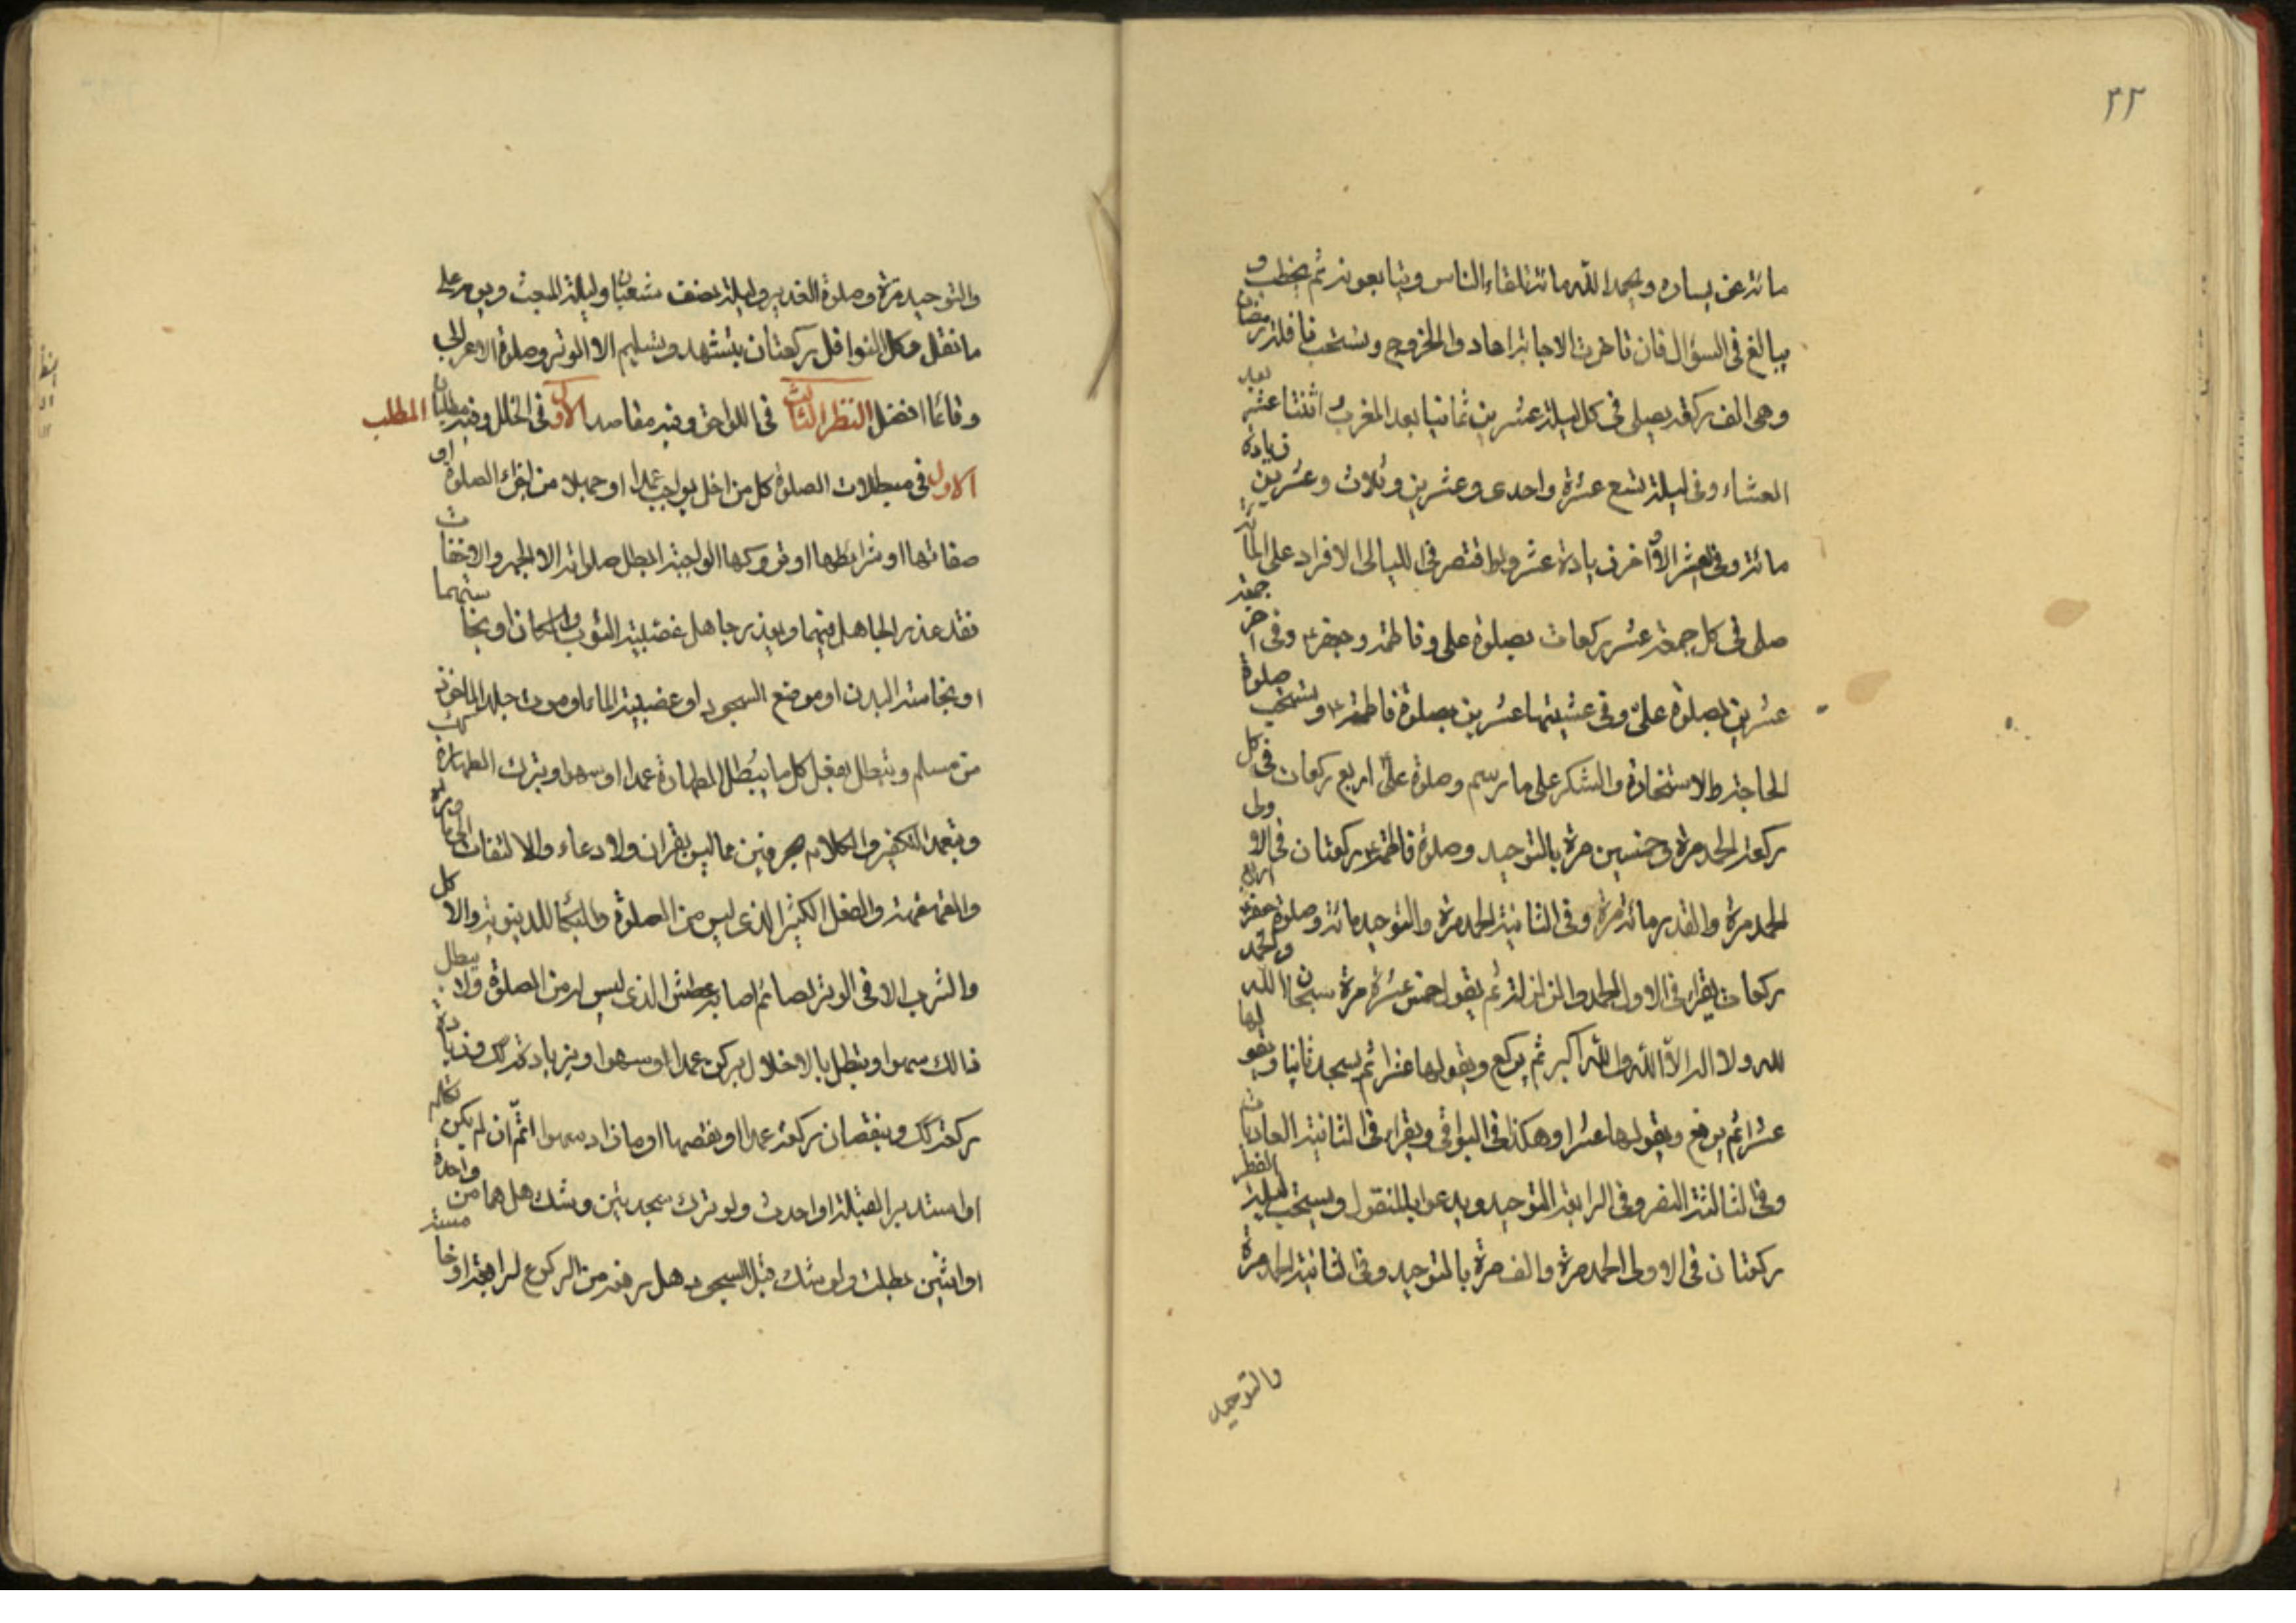 ٣٢
مائة عن يساره ويحمد الله مائة تلقاء الناس ويتابعونه ثم يخطب و
يبالغ في السؤال فان تاخرت الاجابة اعادوا الخروج ويستحب نافلة رمضان
وهي الف ركعة يصلي في كل ليلة عشرين ثمانيا بعد المغرب اثنتا عشرة بعد
العشاء وفي ليلة تسع عشرة واحدى وعشرين وثلاث وعشرين زيادة
مائة وفي العشر الاواخر زيادة عشر ولو اقتصر في الليالي الافراد على المائة
صلى في كل جمعة عشر ركعات بصلوة علي وفاطمة وجعفر ع وفي اخر جمعة
عشرين بصلوة علي وفي عشيتها عشرين بصلوة فاطمة ع ويستحب صلوة
الحاجة والاستخارة والشكر على ما رسم وصلوة علي اربع ركعات في كل
ركعة الحمد مرة وخمسين مرة بالتوحيد وصلوة فاطمة ع ركعتان في الاولى
الحمد مرة والقدر مائة مرة وفي الثانية الحمد مرة والتوحيد مائة وصلوة جعفر ع اربع
ركعات يقرا في الاولى الحمد والزلزلة ثم يقول خمس عشرة مرة سبحان الله والحمد
لله ولا اله الا الله والله اكبر ثم يركع ويقولها عشرا ثم يسجد ثانيا ويقولها
عشرا ثم يرفع ويقولها عشرا وهكذا في البواقي ويقرا في الثانية العاديات
وفي الثالثة النصر وفي الرابعة التوحيد ويدعو بالمنقول ويستحب ليلة الفطر
ركعتان في الاولى الحمد مرة والف مرة بالتوحيد وفي الثانية الحمد مرة
والتوحيد
والتوحيد مرة وصلوة الغدير وليلة نصف شعبان وليلة المبعث ويومه على
ما نقل وكل النوافل ركعتان بتشهد وتسليم الا الوتر وصلوة الاعرابي
وقائما افضل النظر الثالث في اللواحق وفيه مقاصد الاول في الخلل وفيه مطلبان المطلب
الاول في مبطلات الصلوة كل من اخل بواجب عمدا او جهلا من اجزاء الصلوة او
صفاتها او شرائطها او تروكها الواجبة ابطل صلواته الا الجهر والاخفات
فقد عذر الجاهل فيهما ويعذر جاهل غصبية الثوب والمكان او نجاستهما
او نجاسة البدن او موضع السجود او غصبية الماء او موت جلد الماخوذ
من مسلم وتبطل بفعل كل ما يبطل الطهارة عمدا او سهوا وبترك الطهارة كك
وبتعمد التكفير والكلام بحرفين مما ليس بقران ولا دعاء والالتفات الى ما وراءه
والقهقهة والفعل الكثير الذي ليس من الصلوة والبكاء للدنيوية والاكل
والشرب الا في الوتر لصائم اصابه عطش الذي ليس له من الصلوة ولا يبطل
ذالك سهوا وتبطل بالاخلال بركن عمدا او سهوا وبزيادته كك وزيادة
ركعة كك وبنقصان ركعة عمدا ونقصها او ما زاد سهوا اتم ان لم يكن تكلم
او استدبر القبلة او احدث ولو ترك سجدتين وشك هل هما من واحدة
او اثنين بطلت ولو شك قبل السجود هل رفعه من الركوع لرابعة او خامسة